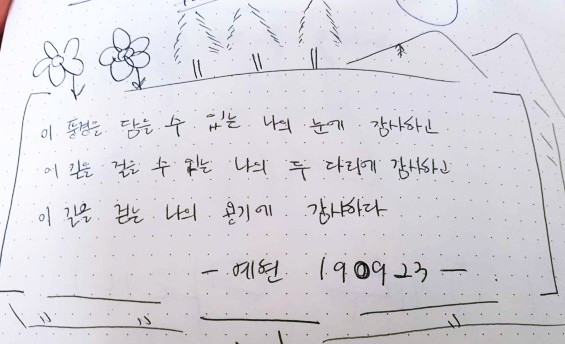 이 풍경을 담을 수 있는 나의 눈에 감사하고
이 길을 걸을 수 있는 나의 두 다리에 감사하고
이 길을 걷는 나의 용기에 감사하다
- 예현 190923 -